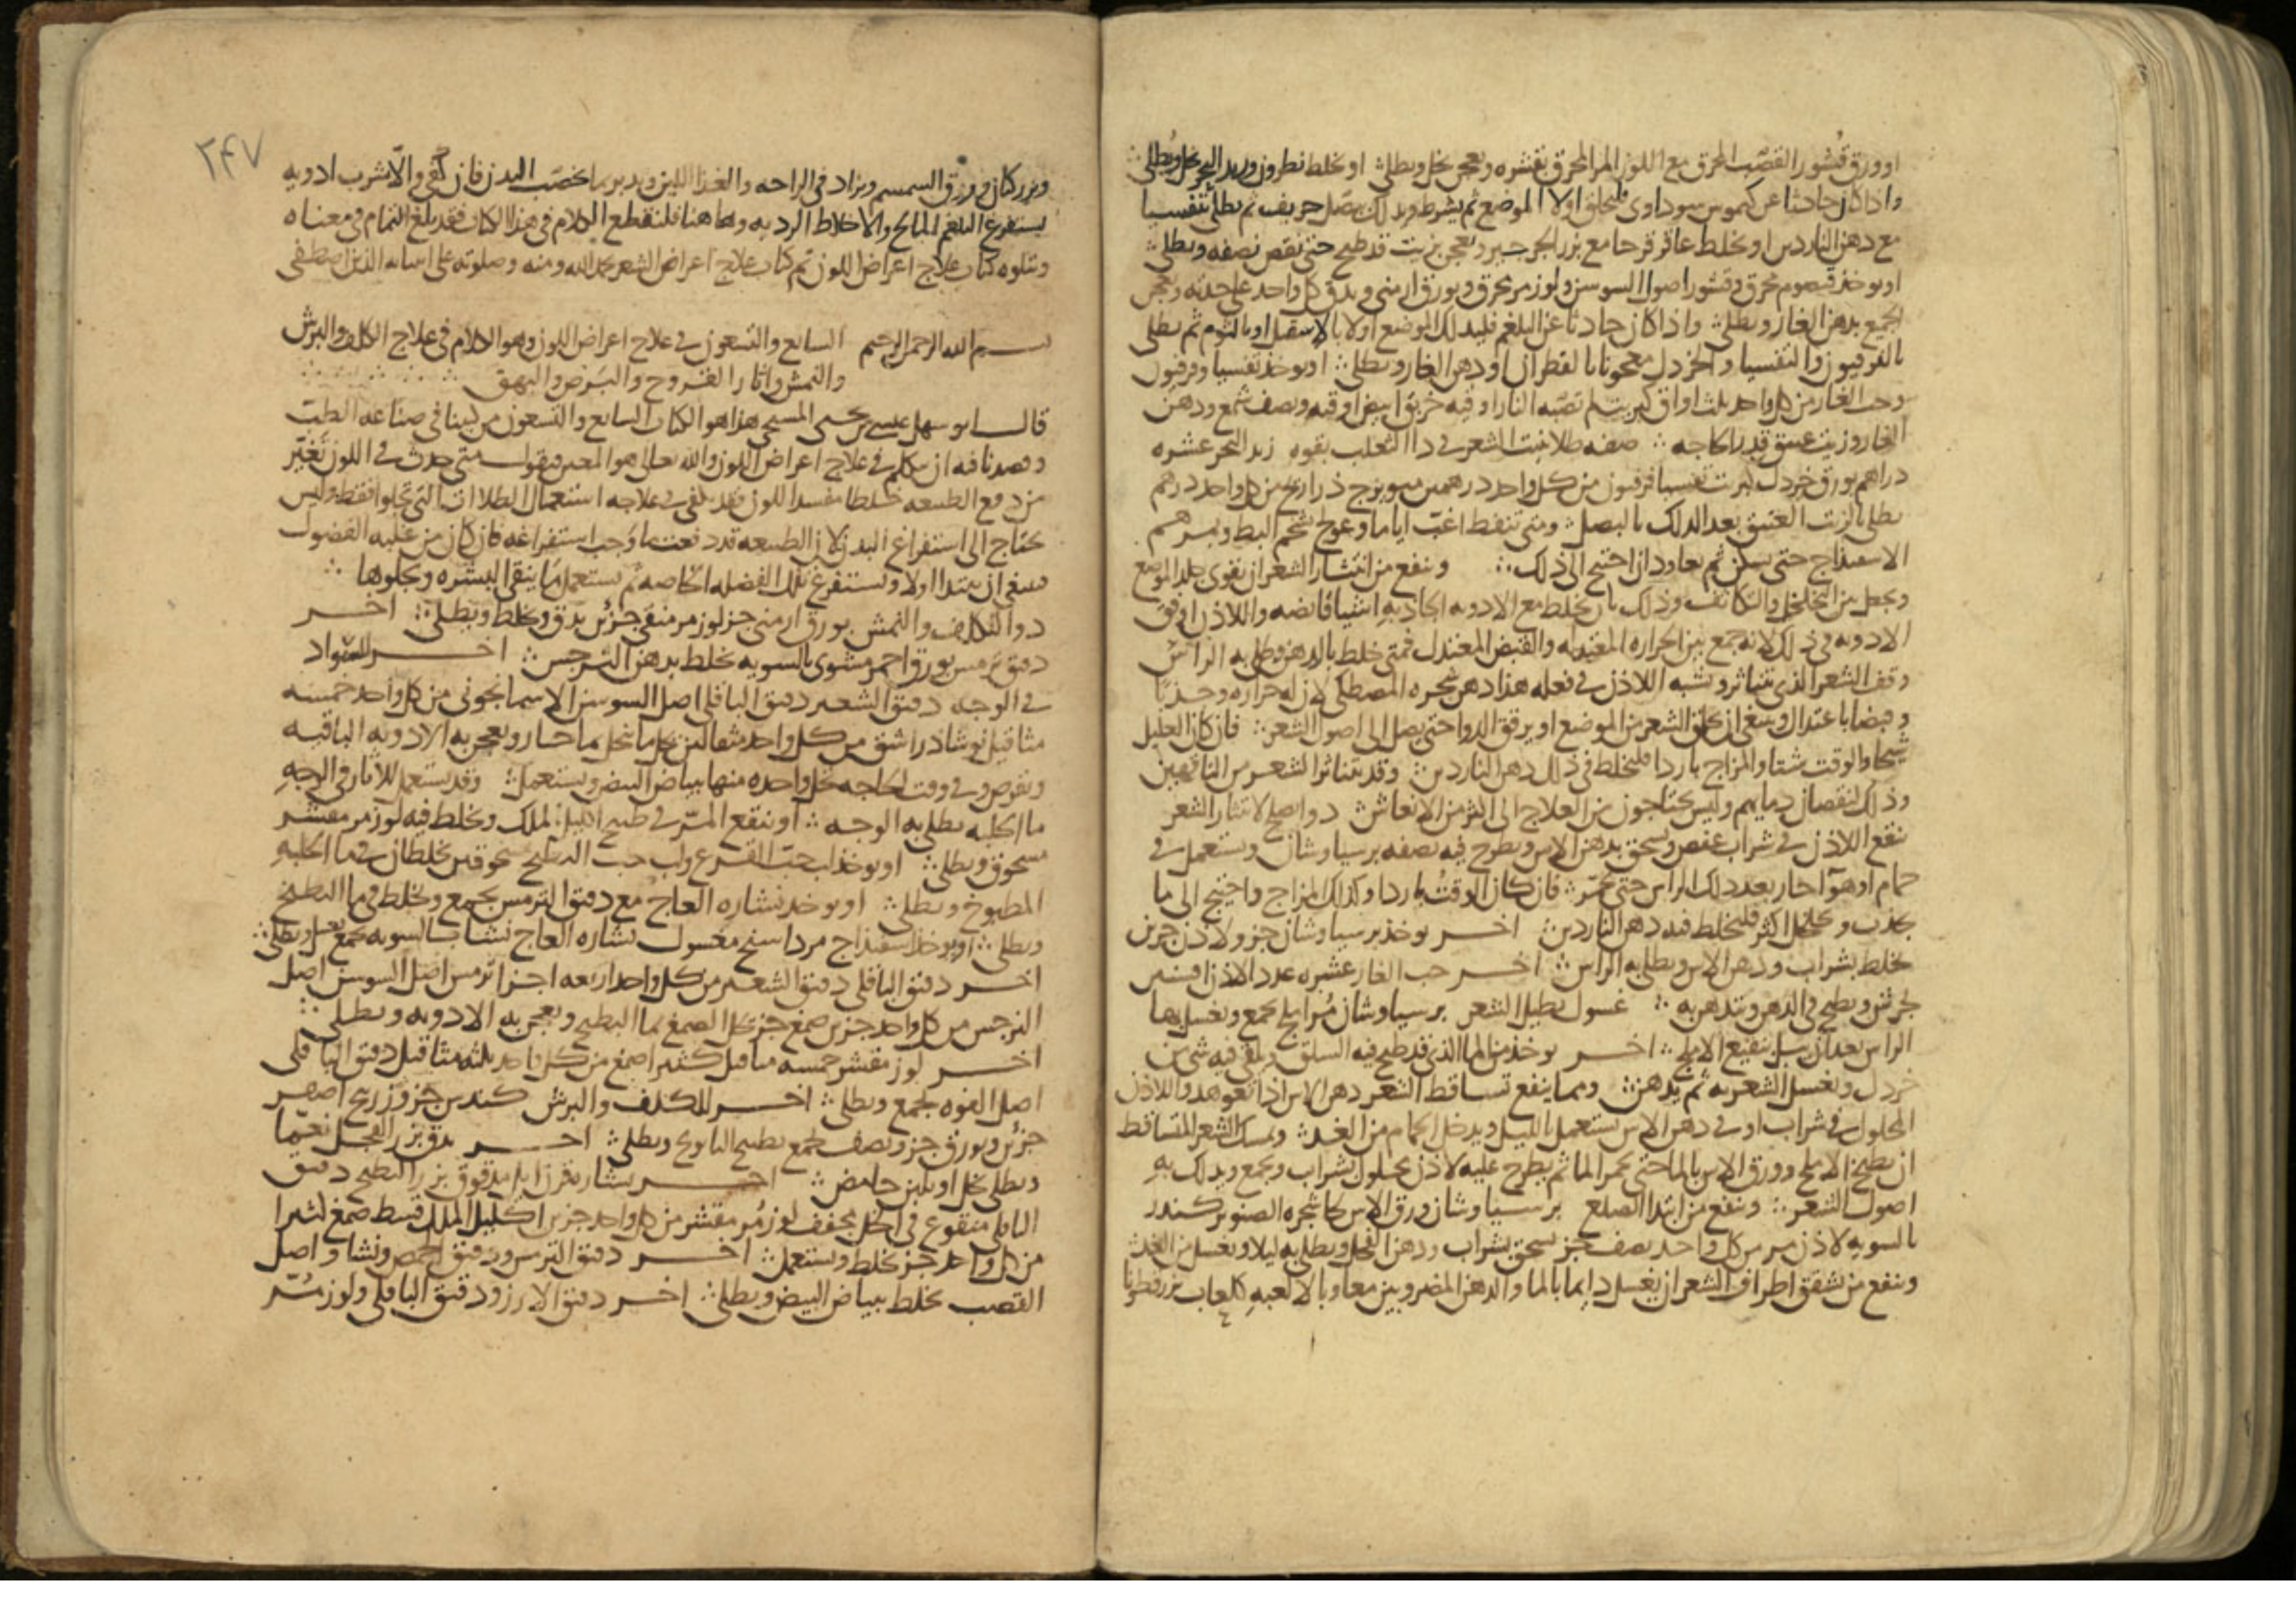 او ورق قشور القصب المحرق مع اللوز المر المحرق بقشره ويعجن بخل ويطلى او يخلط نطرون وزبد البحر بخل ويطلى
واذا كان حادثا عن كيموس سوداوى فليحلق اولا الموضع ثم يشرط ويدلك ببصل حريف ثم يطلى بتفسيا
مع دهن الناردين او يخلط عاقرقرحا مع بزر الجرجير ويعجن بزيت قد طبخ حتى نقص نصفه ويطلى
او يوخذ قيصوم محرق وقشور اصول السوسن ولوز مر محرق وبورق ارمنى ويدق كل واحد على حدته ويعجن
الجميع بدهن الغار ويطلى واذا كان حادثا عن البلغم فليدلك الموضع اولا بالاسقيل او بالثوم ثم يطلى
بالفرفيون والتفسيا والخردل معجونا بالقطران او دهن الغار ويطلى او يوخذ تفسيا وفرفيون
وحب الغار من كل واحد ثلث اواق كبريت لم تصبه النار اوقيه خربق ابيض اوقيه ونصف شمع ودهن
الغار وزيت عتيق قدر الحاجه صفه طلا ينبت الشعر فى دا الثعلب بقوه زبد البحر عشره
دراهم بورق خردل كبريت تفسيا فرفيون من كل واحد درهمين ميويزج ذراريح من كل واحد درهم
يطلى بالزيت العتيق بعد الدلك بالبصل ومتى تنفط اغب اياما وعولج بشحم البط وبمرهم
الاسفيذاج حتى يسكن ثم يعاود ان احتيج الى ذلك وينفع من انتشار الشعر ان يقوى جلد الموضع
ويجعل بين التخلخل والتكاثف وذلك بان يخلط مع الادويه الجاذبه اشيا قابضه واللاذن اوفق
الادويه فى ذلك لانه جمع بين الحراره المعتدله والقبض المعتدل فمتى خلط بالدهن وطلى به الراس
وقف الشعر الذى يتناثر وشبه اللاذن فى فعله هذا دهن شجره المصطكى لان له حراره وجذبا
وقبضا باعتدال وينبغى ان يحلق الشعر من الموضع او يرقق الدوا حتى يصل الى اصول الشعر فان كان العليل
شيخا والوقت شتا والمزاج باردا فليخلط فى ذلك دهن الناردين وقد يتناثر الشعر من الناقهين
وذلك لنقصان دمايهم وليس يحتاجون من العلاج الى اكثر من الانعاش دوا يصلح لانتثار الشعر
ينقع اللاذن فى شراب عفص ويسحق بدهن الاس ويطرح فيه نصفه برسياوشان ويستعمل فى
حمام او هوآ حار بعد دلك الراس حتى يحمر فان كان الوقت باردا وكذلك المزاج واحتيج الى ما
يجذب ويحلل اكثر فليخلط فيه دهن الناردين اخر يوخذ برسياوشان جز ولاذن جزين
يخلط بشراب ودهن الاس ويطلى به الراس اخر حب الغار عشره عدد الاذن
ويطبخ فى الدهن ويتدهن به غسول يطيل الشعر برسياوشان مر املج يجمع ويغسل بها
الراس بعد ان يبل بنقيع الاملج اخر يوخذ من الما الذى قد طبخ فيه السلق ويلقى فيه شى من
خردل ويغسل الشعر به ثم يدهن ومما ينفع تساقط الشعر دهن الاس اذا تعوهد واللاذن
المحلول فى شراب او فى دهن الاس يستعمل بالليل ويدخل الحمام من الغد ويمسك الشعر المتساقط
ان يطبخ الاملج وورق الاس بالما حتى يحمر الما ثم يطرح عليه لاذن محلول بشراب ويجمع ويدلك به
اصول الشعر وينفع من ابتدا الصلع برسياوشان ورق الاس لحا شجره الصنوبر كندر
بالسويه لاذن مر من كل واحد نصف جز يسحق بشراب ودهن الفجل ويطلى به ليلا ويغسل من الغد
وينفع من تشقق اطراف الشعر ان يغسل دايما بالما والدهن المضروبين معا وبالالعبه كلعاب بزرقطونا
٢٤٧
وبزر كتان وورق السمسم ويزاد فى الراحه والغذا اللين ويدبر بما يخصب البدن فان كفى والا شرب ادويه
يستفرغ البلغم المالح والاخلاط الرديه وهاهنا فلنقطع الكلام فى هذا الكتاب فقد بلغ التمام فى معناه
ويتلوه كتاب علاج اعراض اللون تم كتاب علاج اعراض الشعر بحمد الله ومنه وصلوته على انبيائه الذين اصطفى
بسم الله الرحمن الرحيم السابع والتسعون فى علاج اعراض اللون وهو الكلام فى علاج الكلف والبرش
والنمش واثار القروح والبرص والبهق
قال ابو سهل عيسى بن يحيى المسيحى هذا هو الكتاب السابع والتسعون من كتبنا فى صناعه الطب
وقصدنا فيه ان نتكلم فى علاج اعراض اللون والله تعالى هو المعين فنقول متى حدث فى اللون تغير
من دفع الطبيعه خلطا مفسدا للون فقد يكفى فى علاجه استعمال الطلاات التى تجلوا فقط وليس
يحتاج الى استفراغ البدن لان الطبيعه قد دفعت ما وجب استفراغه فان كان من غلبه الفضول
فينبغى ان يبتدا اولا ويستفرغ تلك الفضله الخاصه ثم يستعمل ما ينقى البشره ويجلوها
دوا للكلف والنمش بورق ارمنى جز لوز مر منقى جزئين يدق ويخلط ويطلى اخر
دقيق ترمس بورق احمر مشوى بالسويه يخلط بدهن النرجس اخر للسواد
فى الوجه دقيق الشعير دقيق الباقلى اصل السوسن الاسمانجونى من كل واحد خمسه
مثاقيل نوشادر اشق من كل واحد مثقالين يحل ما ينحل بما حار ويعجن به الادويه الباقيه
ويقرص وفى وقت الحاجه يحل واحده منها ببياض البيض ويستعمل وقد يستعمل للاثار فى الوجه
ما الحلبه يطلى به الوجه او ينقع المر فى طبيخ اكليل الملك ويخلط فيه لوز مر مقشر
مسحوق ويطلى او يوخذ لب حب القرع ولب حب البطيخ مسحوقين يخلطان فى ما الحلبه
المطبوخ ويطلى او يوخذ نشاره العاج مع دقيق الترمس يجمع ويخلط فى ما البطيخ
ويطلى او يوخذ اسفيذاج مرداسنج مغسول نشاره العاج نشا بالسويه يجمع بعسل ويطلى
اخر دقيق الباقلى دقيق الشعير من كل واحد اربعه اجزا ترمس اصل السوسن اصل
النرجس من كل واحد جزين صمغ جز يحل الصمغ بما البطيخ ويعجن به الادويه ويطلى
اخر لوز مقشر خمسه مثاقيل كثيرا صمغ من كل واحد ثلثه مثاقيل دقيق الباقلى
اصل الفوه يجمع ويطلى اخر للكلف والبرش كندس جز وزرنيخ اصفر
جزئين وبورق جز ونصف يجمع بطبيخ البابونج ويطلى اخر يدق بزر الفجل نعما
ويطلى بخل او بلبن حامض اخر مدقوق بزر البطيخ دقيق
الباقلى منقوع فى الخل مجفف لوز مر مقشر من كل واحد جزين اكليل الملك قسط صمغ كثيرا
من كل واحد جز يخلط ويستعمل اخر دقيق الترمس ودقيق الحمص ونشا واصل
القصب يخلط ببياض البيض ويطلى اخر دقيق الارز ودقيق الباقلى ولوز مر